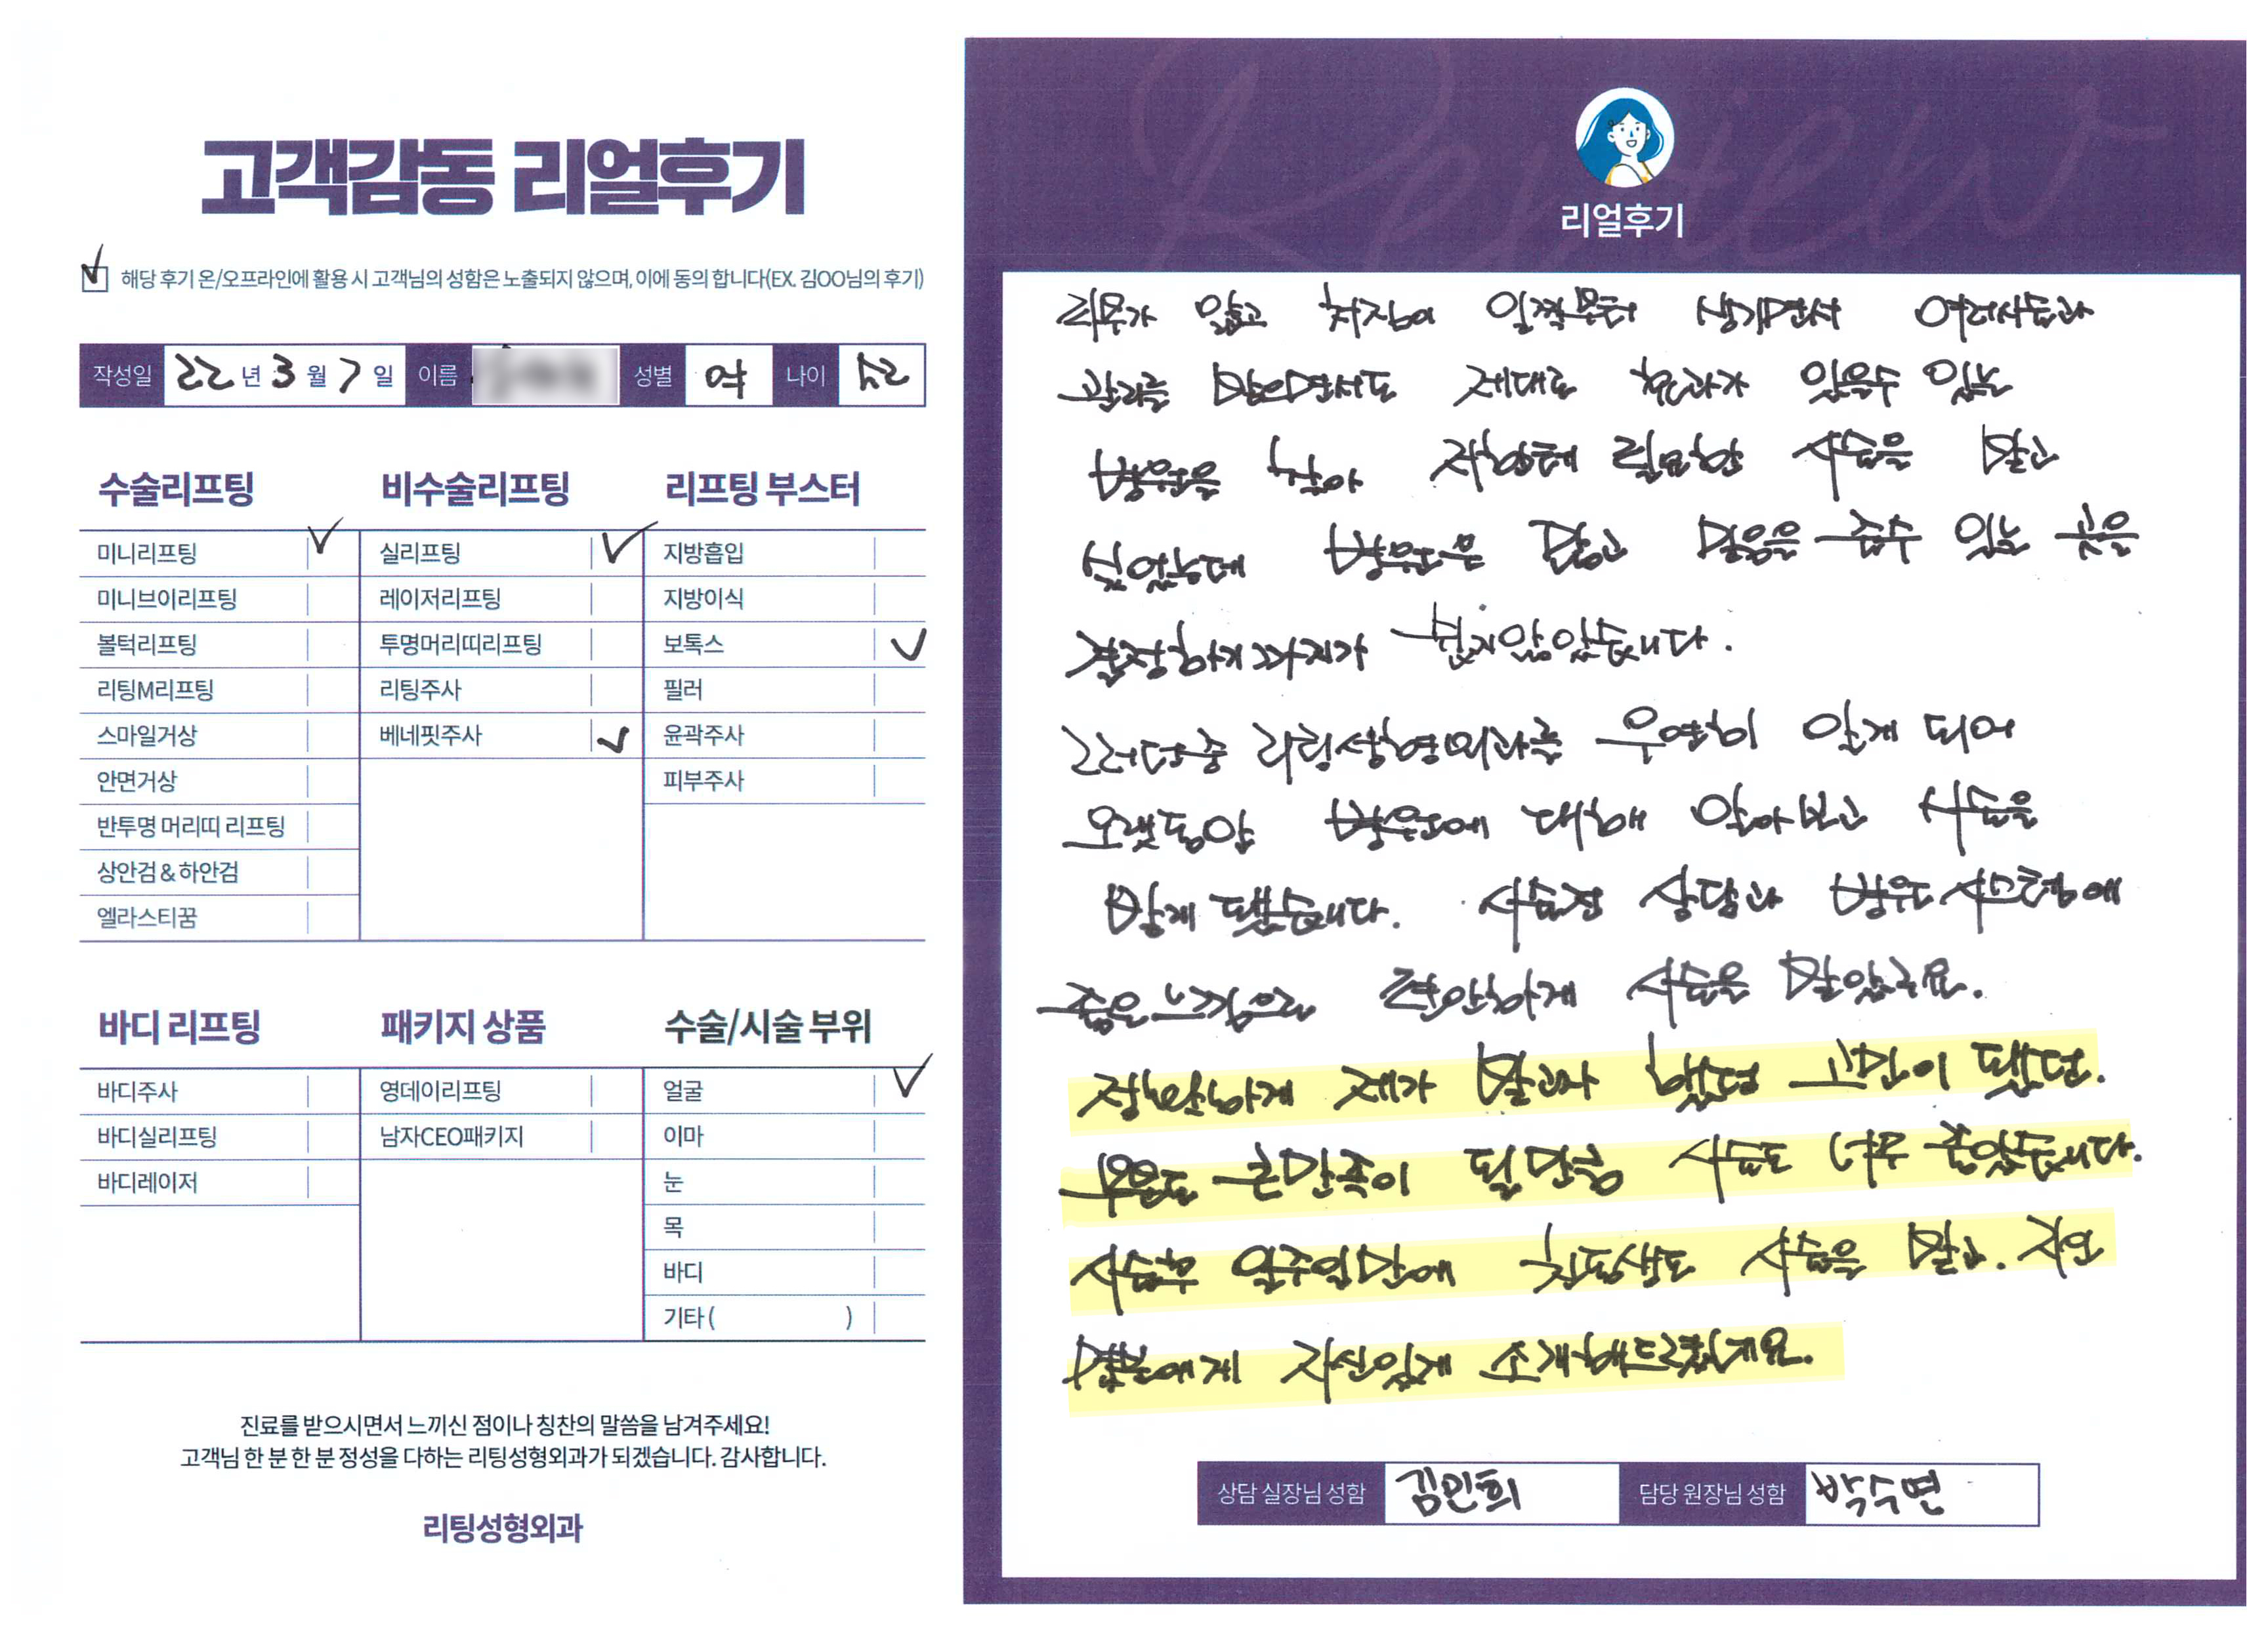 고객감동 리얼후기
해당 후기 온/오프라인에 활용 시 고객님의 성함은 노출되지 않으며, 이에 동의 합니다(EX. 김OO님의 후기)
작성일 22년 3월 7일 이름 성별 여 나이 52
수술리프팅 비수술리프팅 리프팅 부스터
미니리프팅 실리프팅 지방흡입
미니브이리프팅 레이저리프팅 지방이식
볼턱리프팅 투명머리띠리프팅 보톡스
리팅M리프팅 리팅주사 필러
스마일거상 베네핏주사 윤곽주사
안면거상 피부주사
반투명 머리띠 리프팅
상안검 & 하안검
엘라스티꿈
바디 리프팅 패키지 상품 수술/시술 부위
바디주사 영데이리프팅 얼굴
바디실리프팅 남자CEO패키지 이마
바디레이저 눈
목
바디
기타 ( )
진료를 받으시면서 느끼신 점이나 칭찬의 말씀을 남겨주세요!
고객님 한 분 한 분 정성을 다하는 리팅성형외과가 되겠습니다. 감사합니다.
리팅성형외과
Review
리얼후기
피부가 얇고 처짐이 일찍부터 생기면서 여러시술과
관리를 받으면서도 제대로 효과가 있을수 있는
병원을 찾아 저한테 필요한 시술을 받고
싶었는데 병원은 많고 믿음을 줄수 있는 곳을
결정하기까지가 쉽지않았습니다.
그러던중 리팅성형외과를 우연히 알게 되어
오랫동안 병원에 대해 알아보고 시술을
받게 됐습니다. 시술전 상담과 병원 시스템에
좋은 느낌으로 편안하게 시술을 받았구요.
정확하게 제가 받고자 했던 고민이 됐던
부분도 큰만족이 될만큼 시술도 너무 좋았습니다.
시술후 일주일만에 친동생도 시술을 받고. 지인
몇분에게 자신있게 소개해드렸어요.
상담 실장님 성함 김민희 담당 원장님 성함 박수연